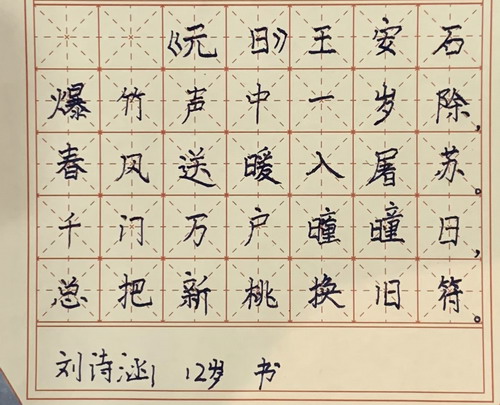 《元日》王安石
爆竹声中一岁除，
春风送暖入屠苏。
千门万户曈曈日，
总把新桃换旧符。
刘诗涵 12岁 书